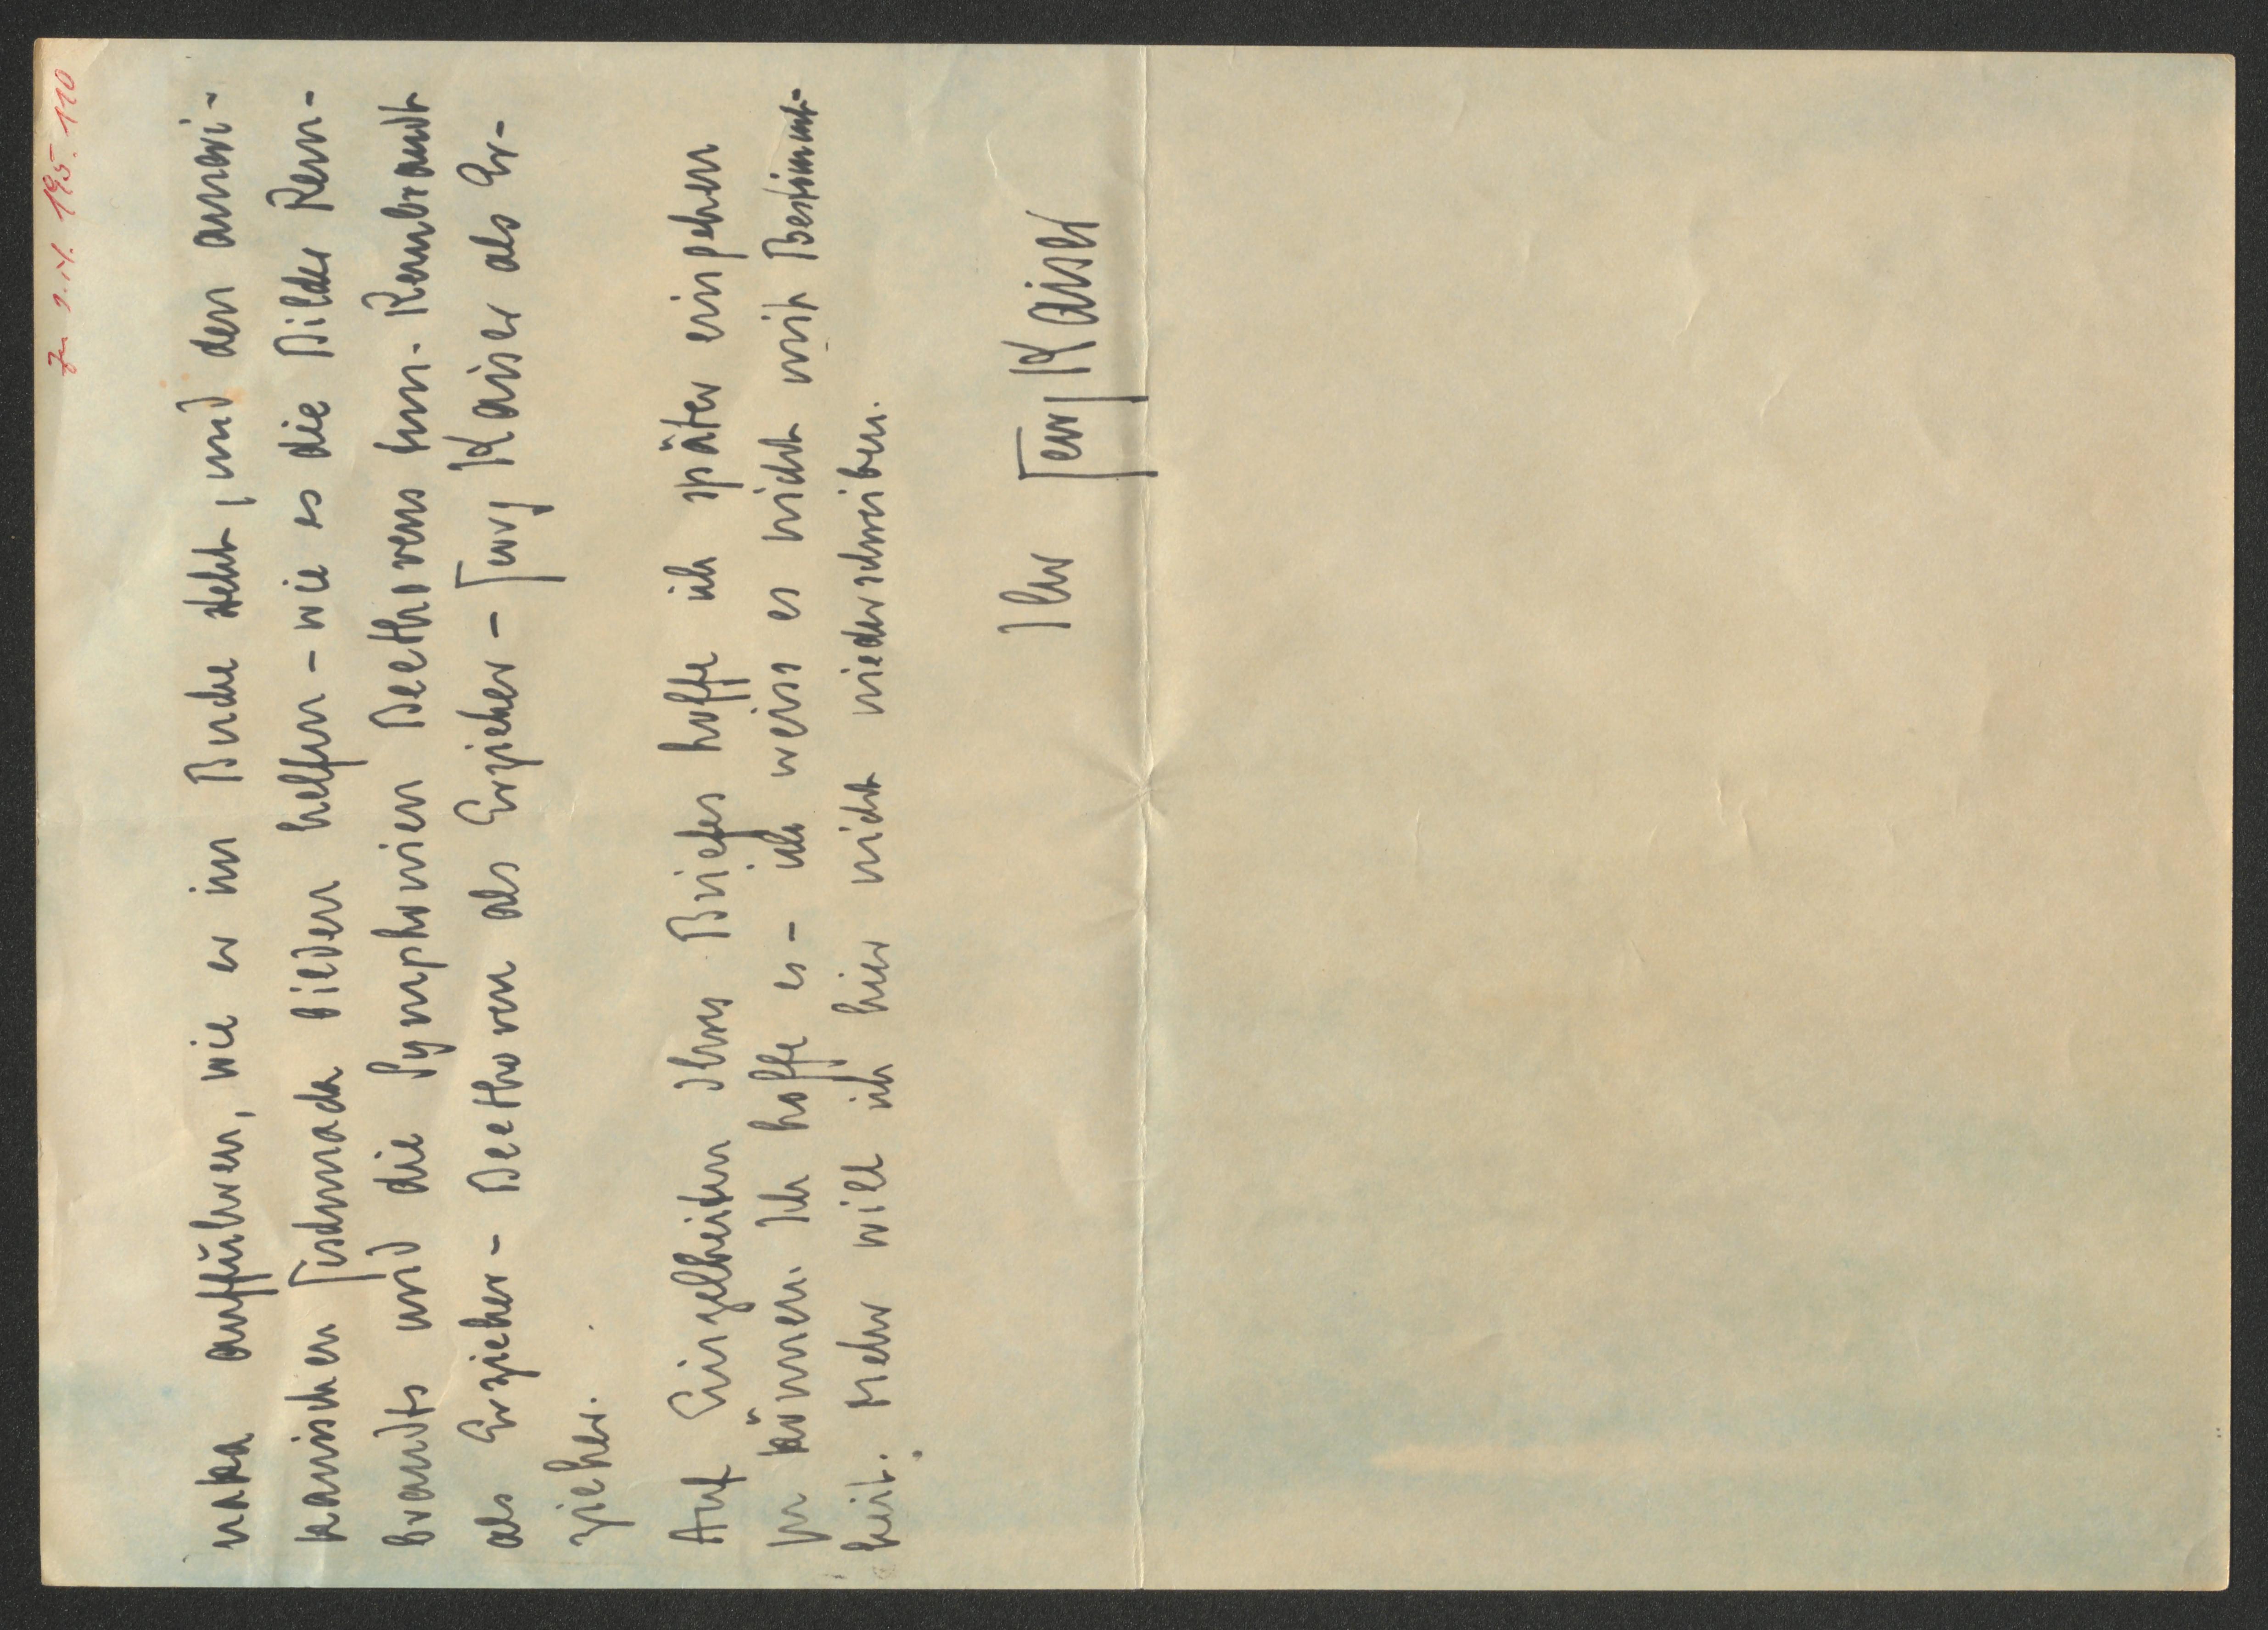 Zu I.N. 195.110
naka aufführen, wie er im Buche steht, und den ameri-
kanischen Tischmada bilden helfen - wie es die Bilder Rem-
brandts und die Symphonien Beethovens tun. Rembrandt
als Erzieher - Beethoven als Erzieher - Georg Kaiser als Er-
zieher.
Auf Einzelheiten Ihres Briefes hoffe ich später eingehen
zu können. Ich hoffe es - ich weiss es nicht mit Bestimmt-
heit. Mehr will ich hier nicht niederschreiben.
Ihr Georg Kaiser